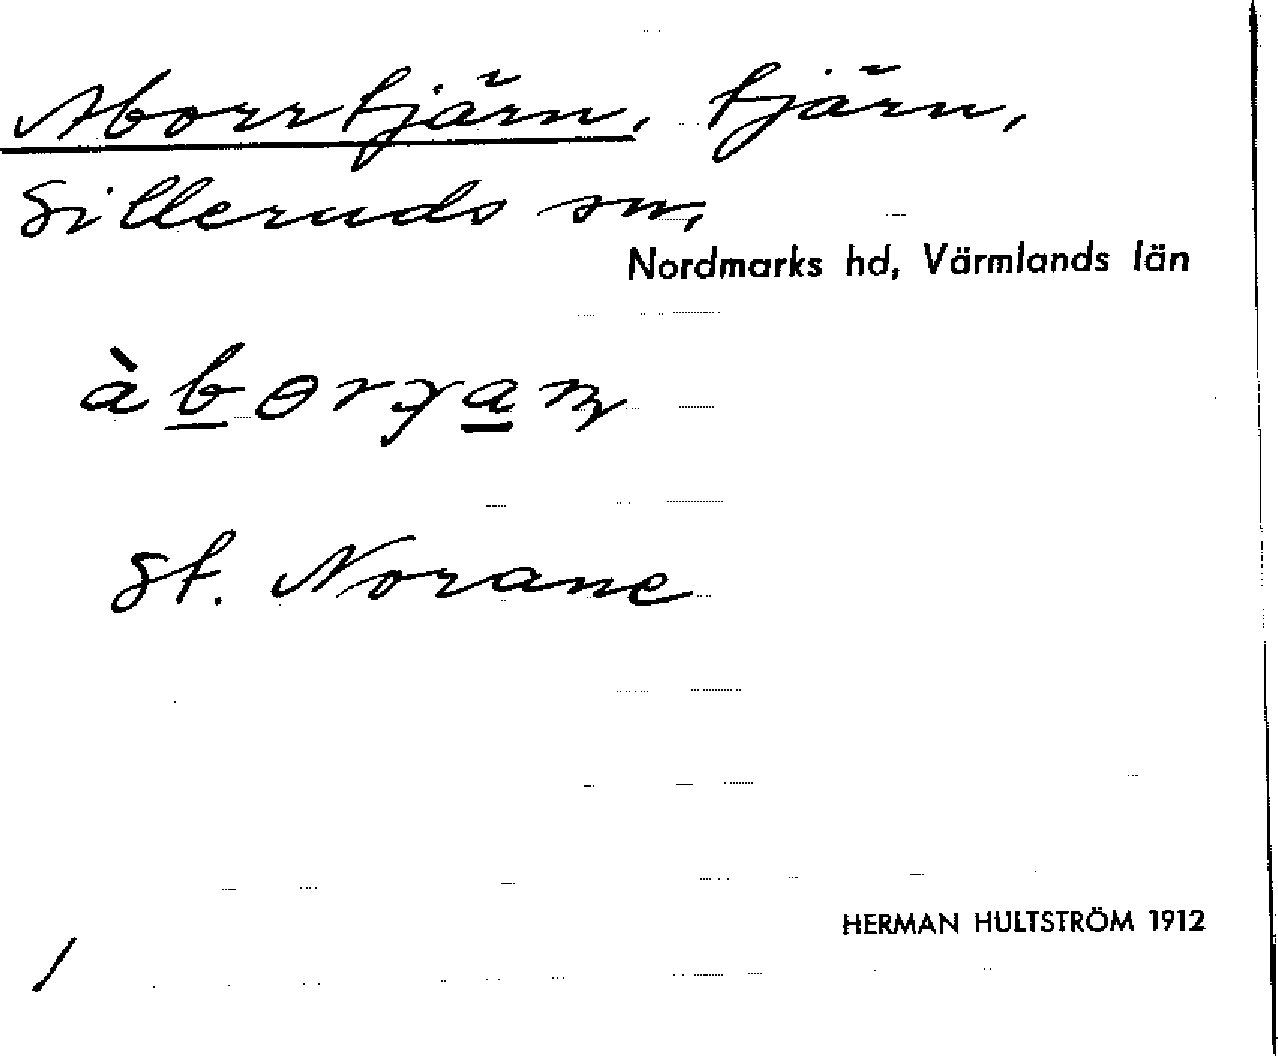 Aborrtjärn, tjärn,
Silleruds sn,
Nordmarks hd, Värmlands län
St. Norane
HERMAN HULTSTRÖM 1912
/